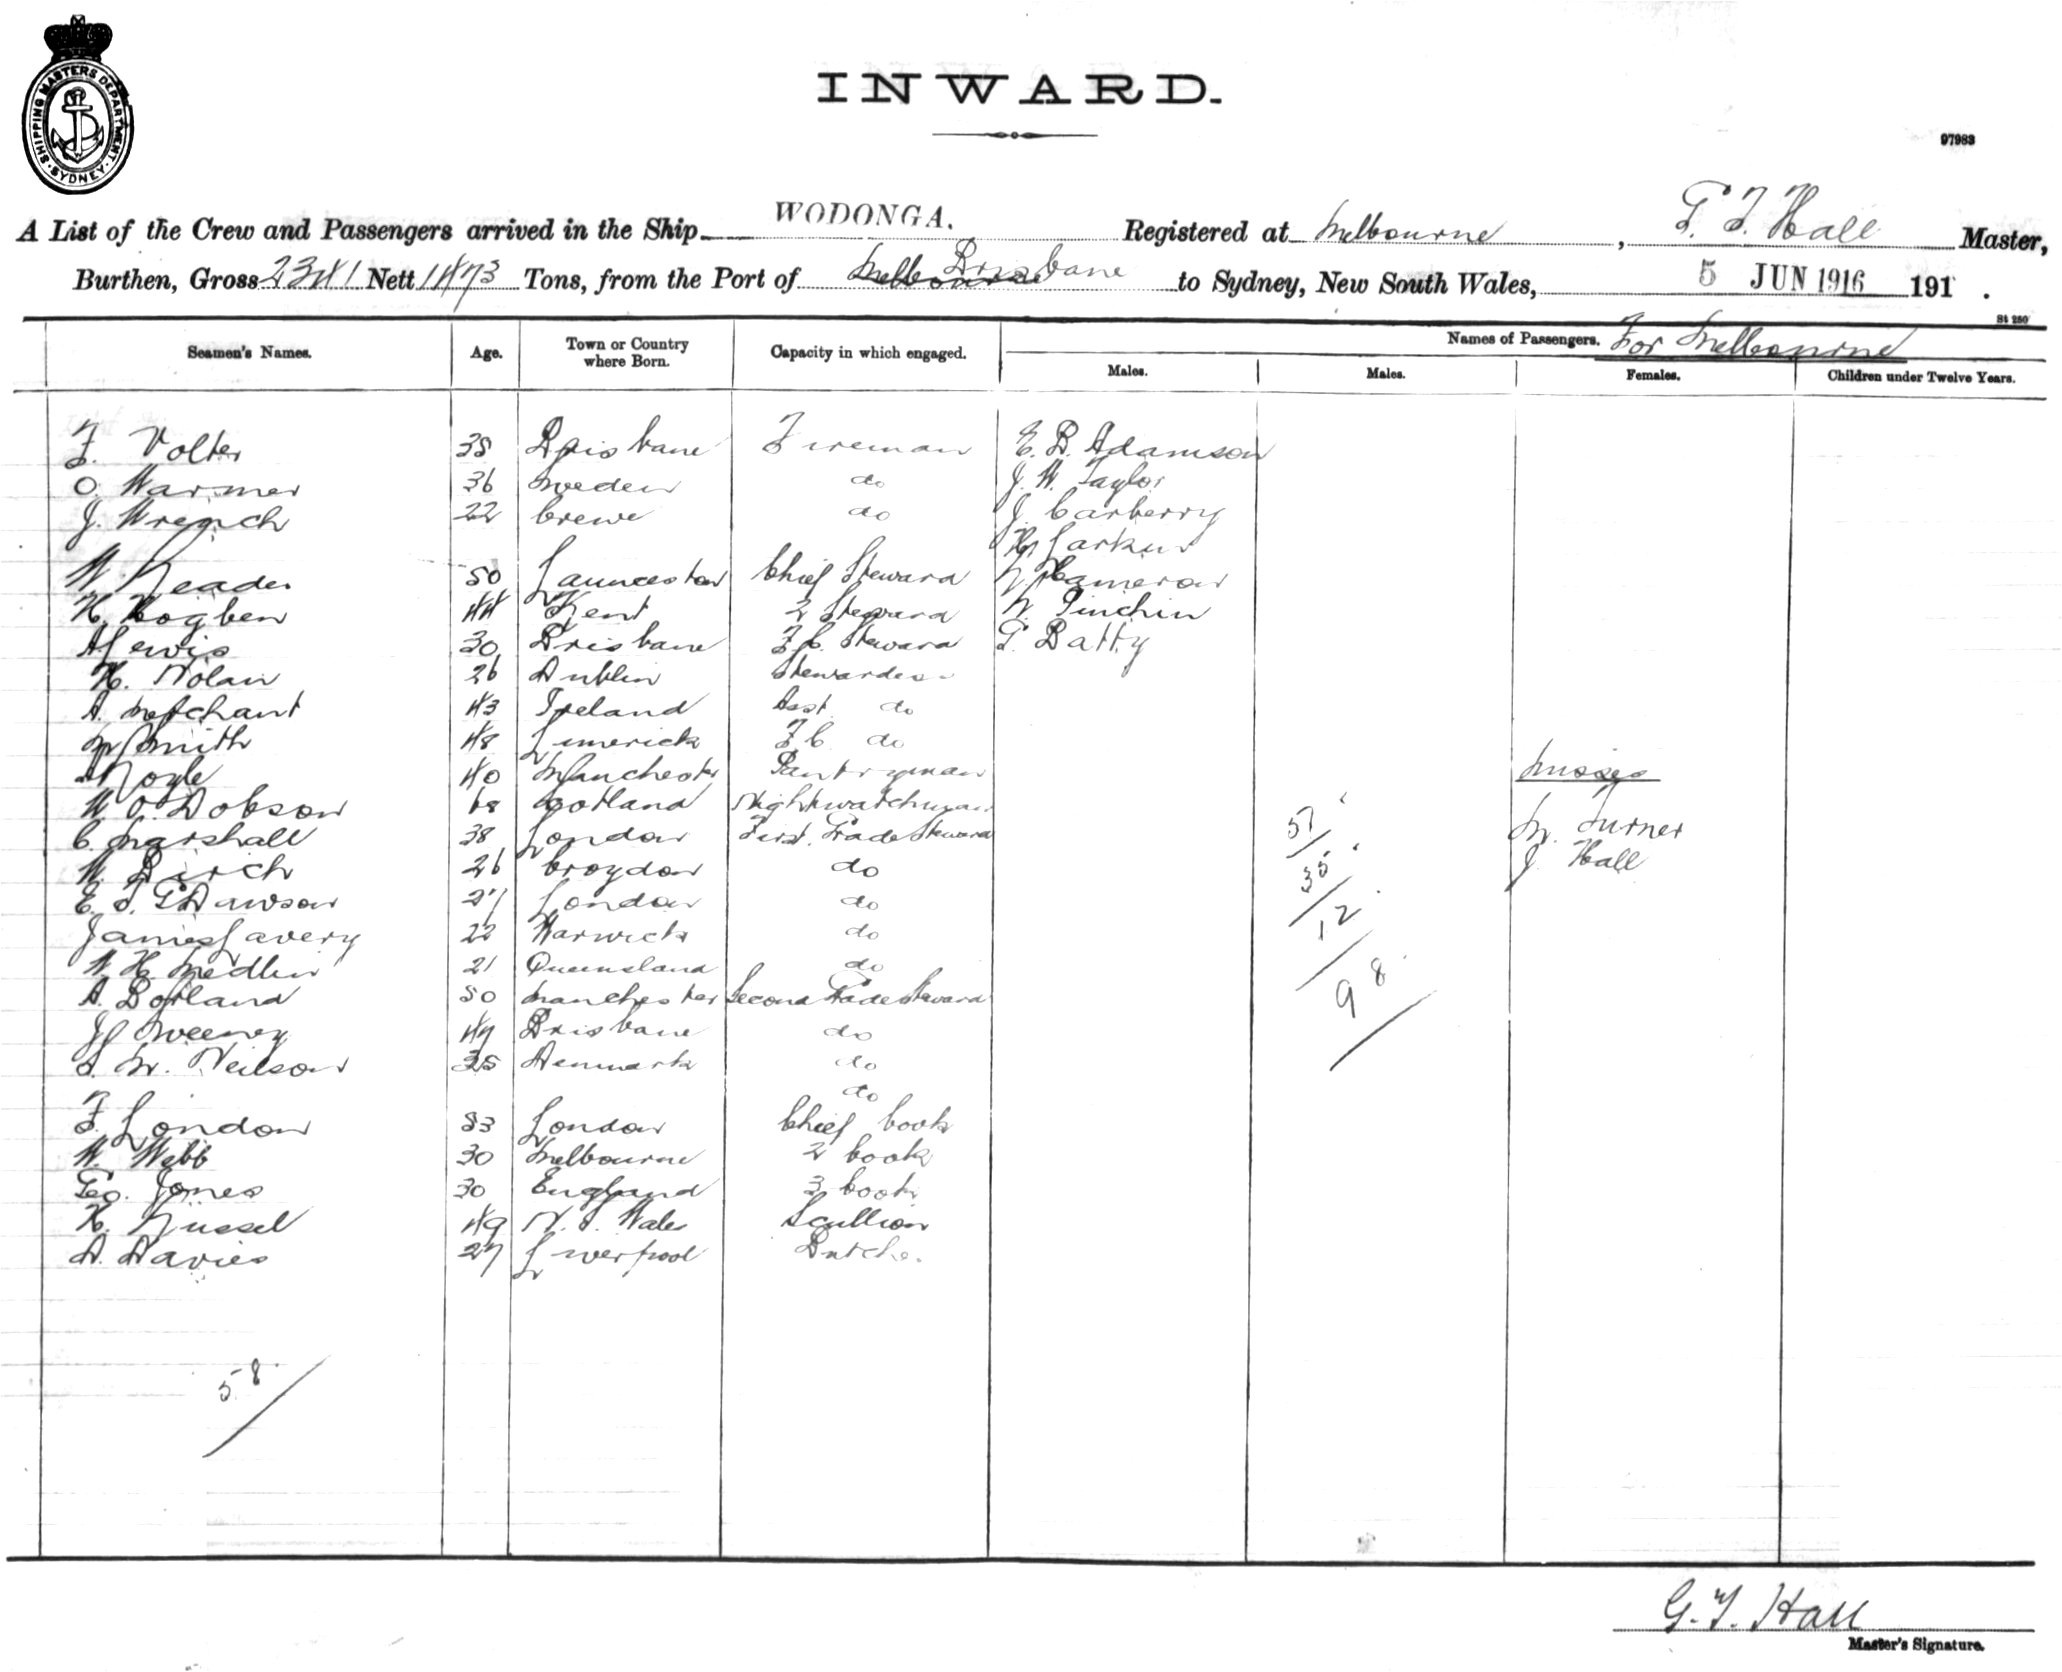 SHIPPING MASTERS DEPARTMENT. SYDNEY
INWARD.
97983
A List of the Crew and Passengers arrived in the Ship WODONGA. Registered at Melbourne, G. T. Hall Master,
Burthen, Gross 2341 Nett 1473 Tons, from the Port of Melbourne Brisbane to Sydney, New South Wales, 5 JUN 1916 191 .
St 250
Seamen's Names. Age. Town or Country where Born. Capacity in which engaged. Names of Passengers. For Melbourne
Males. Males. Females. Children under Twelve Years.
F. Volter 38 Brisbane Fireman E. B. Adamson
O. Warmer 36 Sweden do J. W. Taylor
J. Wrench 22 Crewe do J. Carberry
H. Larkin
W. Reader 50 Launceston Chief Steward Cameron
H. Hogben 44 Kent 2 Steward W. Pinchin
A Lewis 30 Brisbane F.C. Steward G. Batty
H. Nolan 26 Dublin Stewardess
A. Merchant 43 Ireland Asst do
M Smith 48 Limerick F C do
Royle 40 Manchester Pantryman Misses
W. O. Dobson 68 Scotland Nightwatchman
C. Marshall 38 London First Grade Steward 57 M. Turner
W. Birch 26 Croydon do 35 J Hall
E. T. G Dawson 27 London do
James Lavery 22 Warwick do 12
W. H. Medlin 21 Queensland do
A. Borland 50 Manchester Second Grade Steward 98
J Sweeney 47 Brisbane do
S. M. Neilson 35 Denmark do
do
F. London 53 London Chief Cook
W. Webb 30 Melbourne 2 Cook
Geo. Jones 30 England 3 Cook
H. Russel 49 N. S. Wales Scullion
A. Davies 27 Liverpool Butcher
58
G. T. Hall
Master's Signature.